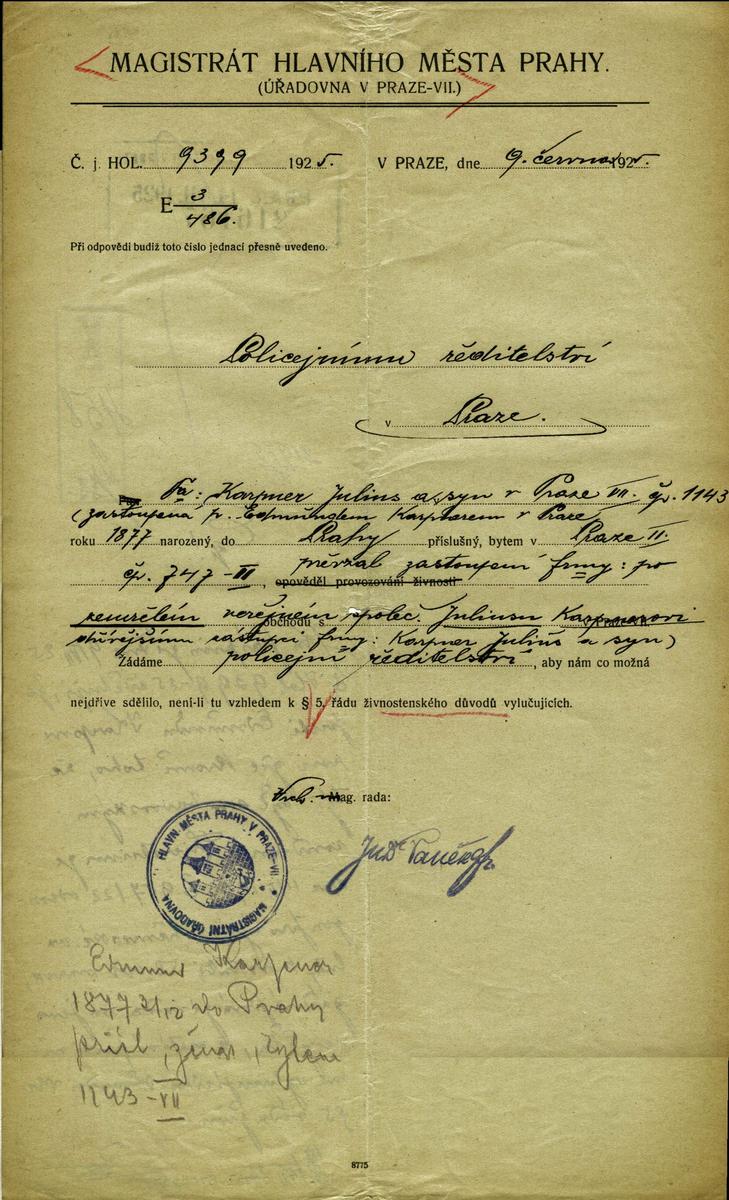 MAGISTRÁT HLAVNÍHO MĚSTA PRAHY.
(ÚŘADOVNA V PRAZE-VII.)
Č. j. HOL. 9399 1925. V PRAZE, dne 9. června 1925.
E 3/486.
Při odpovědi budiž toto číslo jednací přesně uvedeno.
Policejnímu ředitelství
v Praze.
Fa: Karpner Julius a syn v Praze VII. čp. 1143
(zastoupena p. Edmundem Karpnerem v Praze
roku 1877 narozený, do Prahy příslušný, bytem v Praze II.
čp. 747-III, opověděl provozování živnosti převzal zastoupení firmy: po
zemřelém veřejném společ. Juliusu Karpnerovi
obchodu s
dřívějšímu zástupci firmy: Karpner Julius a syn)
Žádáme policejní ředitelství, aby nám co možná
nejdříve sdělilo, není-li tu vzhledem k § 5. řádu živnostenského důvodů vylučujících.
Vrch. Mag. rada:
JUDr
HLAVN. MĚSTA PRAHY V PRAZE-VII.
MAGISTRÁTNÍ ÚŘADOVNA
Edmund Karpner
1877 2/12 do Prahy
přísl., ženat,
1143-VII
8775